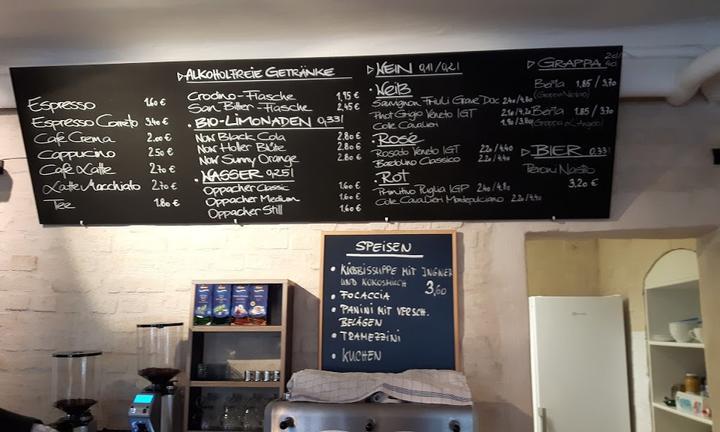 Espresso 1.60 €
Espresso Corretto 3.40 €
Café Crema 2.00 €
Cappuccino 2.50 €
Café Latte 2.70 €
Latte Macchiato 2.70 €
Tee 1.80 €
ALKOHOLFREIE GETRÄNKE
Crodino-Flasche 1,95 €
San Bitter-Flasche 2,45 €
• BIO-LIMONADEN 0,33l
Now Black Cola 2.80 €
Now Holler Blüte 2.80 €
Now Sunny Orange 2.80 €
• WASSER 0,25l
Oppacher Classic 1.60 €
Oppacher Medium 1.60 €
Oppacher Still 1.60 €
WEIN 0,1l/0,2l
• Weiß
Sauvignon Friuli Grave Doc 2.40/4.80
Pinot Grigio Veneto IGT 2.10/4.20
Cole Cavalieri 1.90/3.80
• Rosé
Rosado Veneto IGT 2.20/4.40
Bardolino Classico 2.20/4.40
• Rot
Primitivo Puglia IGP 2.40/4.80
Cole Cavalieri Montepulciano 2.20/4.40
GRAPPA 2cl/4cl
Berta 1.85/3.70
Berta 1.85/3.70
BIER 0.33l
Peroni Nastro
3,20 €
SPEISEN
• KÜRBISSUPPE MIT INGWER
UND KOKOSMILCH 3,60
• FOCACCIA
• PANINI MIT VERSCH.
BELÄGEN
• TRAMEZZINI
• KUCHEN